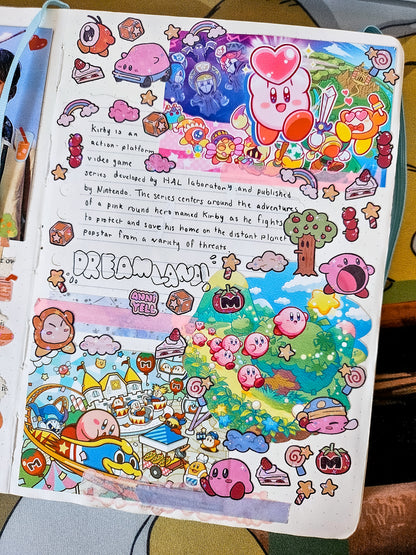 Kirby is an
action-platform
video game
series developed by HAL laboratory and published
by Nintendo. The series centers around the adventures
of a pink round hero named Kirby as he fights
to protect and save his home on the distant planet
popstar from a variety of threats
DREAMLAND!
ANNI
YELL
M
M
M